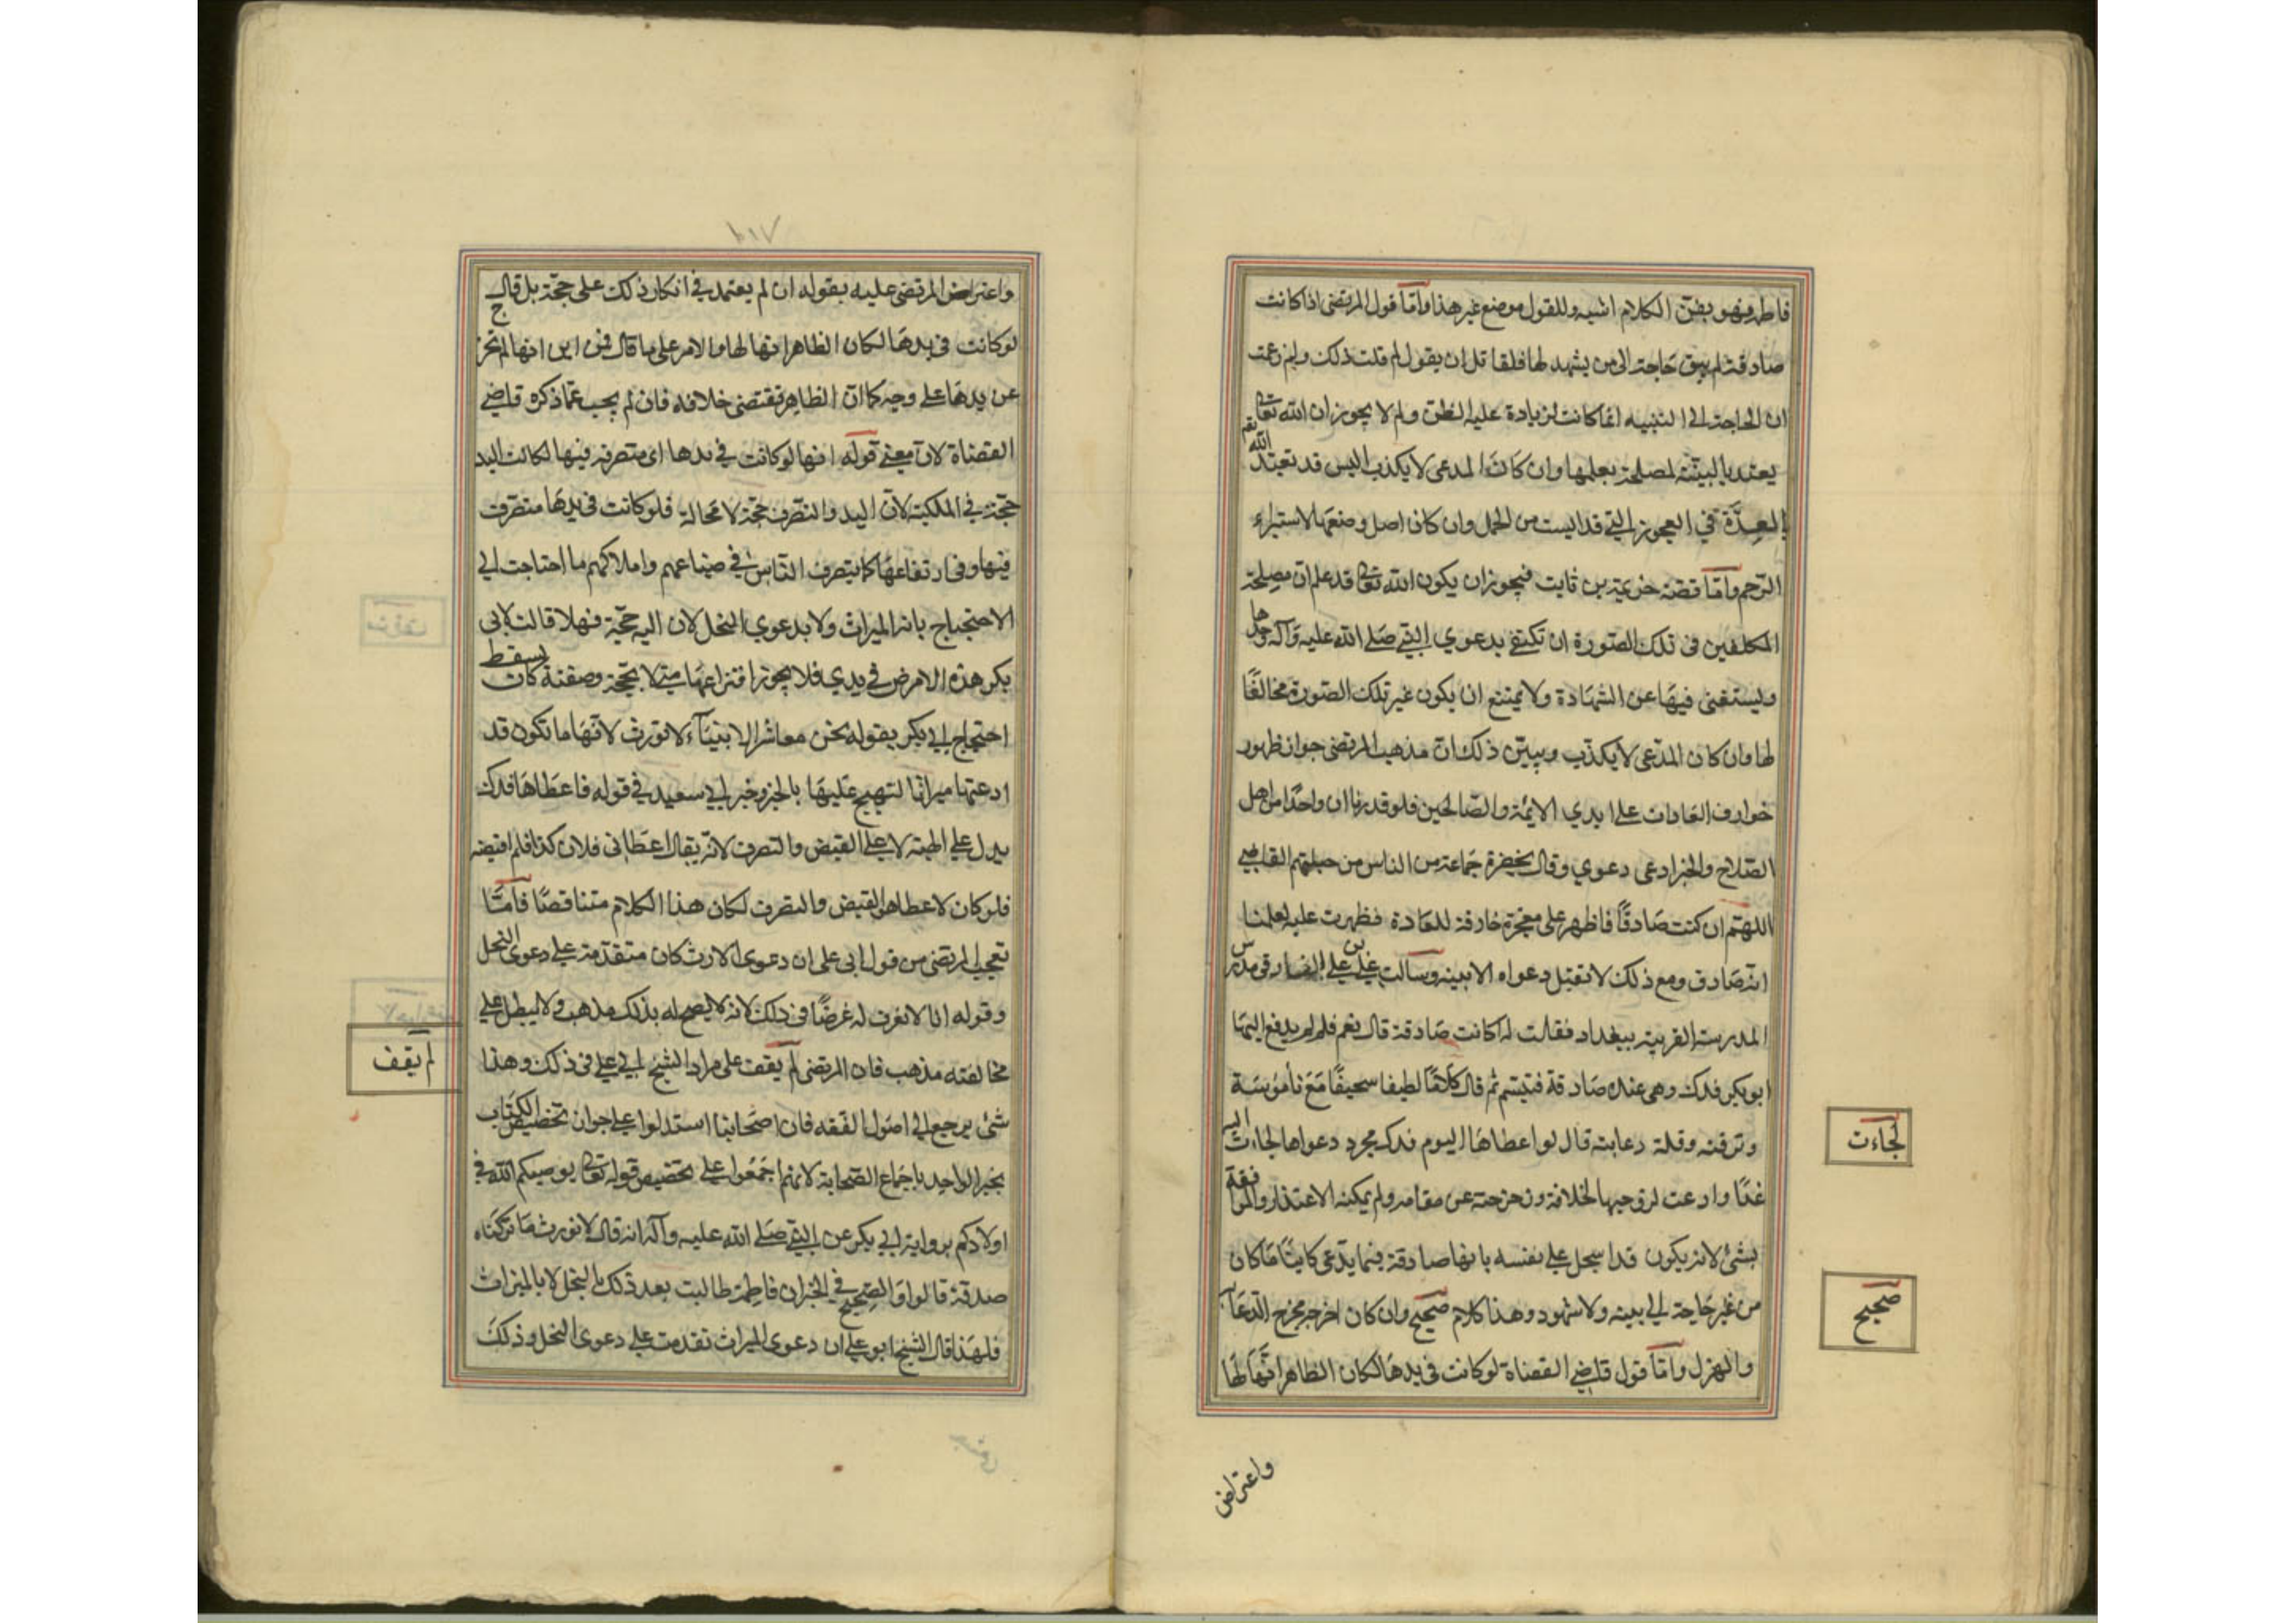 فاطمة فهو بفن الكلام اشبه وللقول موضع غير هذا وأمّا قول المرتضى اذا كانت
صادقة لم يبق حاجة الى من يشهد لها فلقائل ان يقول لم قلت ذلك ولم زعمت
ان الحاجة الى البينه انما كانت لزيادة علبة الظن ولم لا يجوز ان الله تعالى
يعتد بالبيّنة لمصلحة يعلمها وان كان المدعي لا يكذب اليس قد تعبّد الله تعم
بالعِدَّة في العجوز التي قد ايست من الحمل وان كان اصل وضعها لاستبراء
الرّحم وامّا قصّة خزيمة بن ثابت فيجوز ان يكون الله تعالى قد علم ان مصلحة
المكلفين في تلك الصّورة ان تكتفي بدعوي النبي صلى الله عليه وآله وحدها
وليستغنى فيها عن الشهادة ولا يمتنع ان يكون غير تلك الصّورة مخالفًا
لها وان كان المدّعي لا يكذب ويبيّن ذلك انّ مذهب المرتضى جواز ظهور
خوارق العادات على ايدي الائمة والصّالحين فلو قدرنا ان واحدًا من اهل
الصّلاح والخير ادعى دعوي وقال بحضرة جماعة من الناس من جملتهم القاضي
اللهم ان كنت صادقًا فاظهر علي معجزة خارقة للعادة فظهرت عليه لعلمنا
انه صادق ومع ذلك لا تقبل دعواه الا ببينه وسالت علي بن الفارقي مدرس
المدرسة الغربية ببغداد فقلت له اكانت صادقة قال نعم فلم لم يدفع اليها
ابو بكر فدك وهي عنده صادقة فتبسّم ثم قال كلامًا لطيفا سحيفًا مَعَ نأموُسَة
وترفته وقلة دعابته قال لو اعطاها اليوم فدك بمجرد دعواها لجاءت اليه
غدًا وادعت لزوجها الخلافة وزحزحته عن مقامه ولم يمكنه الاعتذار والموافقة
بشئ لانه يكون قد اسجل على نفسه بانها صادقة فيما يدّعي كائنًا ما كان
من غير حاجة الى بينه ولا شهود وهذا كلام صحيح وان كان اخرجه مخرج الدّعابه
والهزل وامّا قول قاضي القضاة لو كانت في يدها لكان الظاهر انّها لها
لجَاءَت
صحيح
واعتراض
٢١٧
واعتراض المرتضى عليه بقوله ان لم يعتمد في انكار ذلك على حجّة بل قال
لو كانت في يدها لكان الظاهر انها لها والامر على ما قال فمن اين انها لم تخرج
عن يدها على وجه كما ان الظاهر تقتضى خلافه فان لم يجب عمّا ذكره قاضي
القضاة لانّ معنى قوله انها لو كانت في يدها اى متصرفه فيها لكانت اليد
حجّة في الملكية لانّ اليد والتصّرف حجّة لا محالة فلو كانت في يدها متصّرفت
فيها وفي ارتفاعها كما يتصرف النّاس في ضياعهم واملاكهم ما احتاجت الي
الاحتجاج بانه الميراث ولا بدعوي النحل لان اليه حجّة فهلا قالت لابي
بكر هذه الارض في يدي فلا يجوز انتزاعها منى الا بحّجة وصفته كان يسقط
احتجاج ابي بكر بقوله نحن معاشر الانبيآء لا نورث لانّها ما تكون قد
ادعتها ميراثا لتهيج عليها بالخبر وخبر ابي سعيد في قوله فاعطاها فدك
يدل على الهبة لا على القبض والتصرف لانّه يقال اعطاني فلان كذا فلم اقبضه
فلو كان لاعطا هو القبض والتصرف لكان هذا الكلام متناقضًا فأمّتا
تعجب المرتضى من قول ابي على ان دعوى الارث كان متقدّمة على دعوى النحل
وقوله انا لا نعرف له غرضًا في ذلك لانه لا يصح له بذلك مذهب ولا يبطل على
مخالفته مذهب فان المرتضى لم يقف على مراد الشيخ ابي علي في ذلك وهذا
شئ يرجع الى اصُول الفقه فان اصحابنا استدلوا على جواز تخصيص الكتاب
بخبر الواحد باجماع الصّحابة لانهم اجمَعُوا على تخصيص قوله تعالى يوصيكم الله في
اولادكم برواية ابي بكر عن النبي صلى الله عليه وآله انه قال لا نورث ما تركناه
صدقة قالوا والصحيح في الخبر ان فاطمة طالبت بعد ذلك بالنحل لا بالميراث
فلهذا قال الشيخ ابو علي ان دعوى الميراث تقدمت على دعوى النحل وذلك
لم يقف